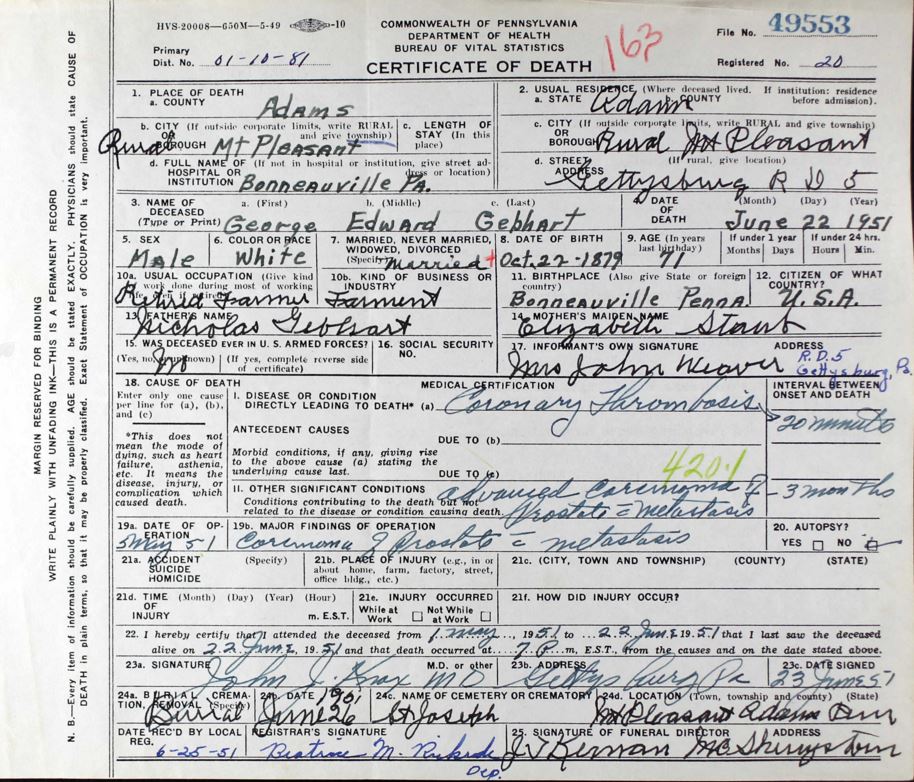 HVS-20008—650M—5-49 -10
COMMONWEALTH OF PENNSYLVANIA
DEPARTMENT OF HEALTH
BUREAU OF VITAL STATISTICS
CERTIFICATE OF DEATH
163
File No. 49553
Primary
Dist. No. 01-10-81
Registered No. 20
MARGIN RESERVED FOR BINDING
WRITE PLAINLY WITH UNFADING INK—THIS IS A PERMANENT RECORD
N. B.—Every item of information should be carefully supplied. AGE should be stated EXACTLY. PHYSICIANS should state CAUSE OF
DEATH in plain terms, so that it may be properly classified. Exact Statement of OCCUPATION is very important.
1. PLACE OF DEATH
a. COUNTY Adams
2. USUAL RESIDENCE (Where deceased lived. If institution: residence before admission).
a. STATE Adams COUNTY
b. CITY (If outside corporate limits, write RURAL and give township)
OR
BOROUGH Rural Mt Pleasant
c. LENGTH OF STAY (In this place)
c. CITY (If outside corporate limits, write RURAL and give township)
OR
BOROUGH Rural Mt Pleasant
d. FULL NAME OF (If not in hospital or institution, give street address or location)
HOSPITAL OR
INSTITUTION Bonneauville Pa.
d. STREET (If rural, give location)
ADDRESS Gettysburg R D 5
3. NAME OF DECEASED (Type or Print)
a. (First) b. (Middle) c. (Last)
George Edward Gebhart
4. DATE OF DEATH (Month) (Day) (Year)
June 22 1951
5. SEX
Male
6. COLOR OR RACE
White
7. MARRIED, NEVER MARRIED, WIDOWED, DIVORCED (Specify)
Married
8. DATE OF BIRTH
Oct. 27-1879
9. AGE (In years last birthday)
71
If under 1 year
Months Days
If under 24 hrs.
Hours Min.
10a. USUAL OCCUPATION (Give kind of work done during most of working life, even if retired)
Retired Farmer
10b. KIND OF BUSINESS OR INDUSTRY
11. BIRTHPLACE (Also give State or foreign country)
Bonneauville Penna.
12. CITIZEN OF WHAT COUNTRY?
U.S.A.
13. FATHER'S NAME
Nicholas Gebhart
14. MOTHER'S MAIDEN NAME
Elizabeth Staub
15. WAS DECEASED EVER IN U. S. ARMED FORCES?
(Yes, no, unknown) (If yes, complete reverse side of certificate)
No
16. SOCIAL SECURITY NO.
17. INFORMANT'S OWN SIGNATURE ADDRESS
Mrs John Weaver R.D.5
Gettysburg, Pa.
18. CAUSE OF DEATH
Enter only one cause per line for (a), (b), and (c)
*This does not mean the mode of dying, such as heart failure, asthenia, etc. It means the disease, injury, or complication which caused death.
MEDICAL CERTIFICATION
INTERVAL BETWEEN ONSET AND DEATH
I. DISEASE OR CONDITION
DIRECTLY LEADING TO DEATH* (a) Coronary Thrombosis 20 minutes
ANTECEDENT CAUSES
DUE TO (b)
Morbid conditions, if any, giving rise to the above cause (a) stating the underlying cause last.
DUE TO (c)
420.1
II. OTHER SIGNIFICANT CONDITIONS
Conditions contributing to the death but not related to the disease or condition causing death.
advanced Carcinoma of - 3 months
Prostate = metastasis
19a. DATE OF OPERATION
5 May 51
19b. MAJOR FINDINGS OF OPERATION
Carcinoma of Prostate = metastasis
20. AUTOPSY?
YES □ NO □
21a. ACCIDENT (Specify)
SUICIDE
HOMICIDE
21b. PLACE OF INJURY (e.g., in or about home, farm, factory, street, office bldg., etc.)
21c. (CITY, TOWN AND TOWNSHIP) (COUNTY) (STATE)
21d. TIME (Month) (Day) (Year) (Hour)
OF
INJURY m. E.S.T.
21e. INJURY OCCURRED
While at Work □ Not While at Work □
21f. HOW DID INJURY OCCUR?
22. I hereby certify that I attended the deceased from 1 May, 1951 to 22 June 1951 that I last saw the deceased
alive on 22 June, 1951 and that death occurred at 7 P.m, E.S.T., from the causes and on the date stated above.
23a. SIGNATURE M.D. or other
John J. Knox MD
23b. ADDRESS
Gettysburg Pa
23c. DATE SIGNED
23 June 51
24a. BURIAL, CREMATION, REMOVAL (Specify)
Burial
24b. DATE 1951
June 26
24c. NAME OF CEMETERY OR CREMATORY
St Joseph
24d. LOCATION (Town, township, county) (State)
Mt Pleasant Adams Penn
DATE REC'D BY LOCAL REG.
6-25-51
REGISTRAR'S SIGNATURE
Beatrice M.
Dep.
25. SIGNATURE OF FUNERAL DIRECTOR ADDRESS
McSherrystown